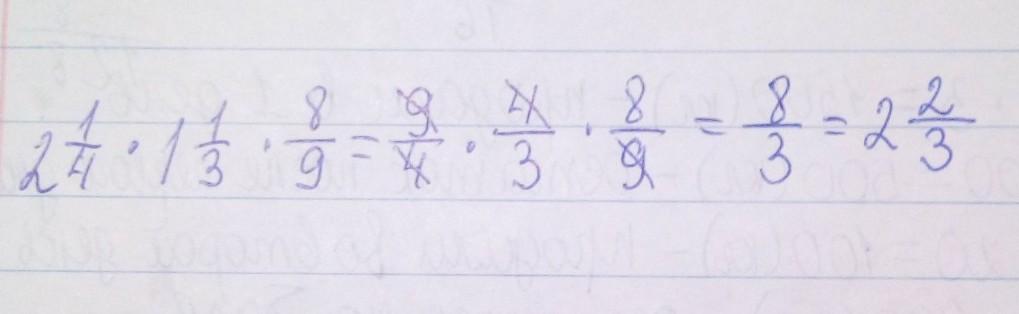 2 1/4 · 1 1/3 · 8/9 = 9/4 · 4/3 · 8/9 = 8/3 = 2 2/3